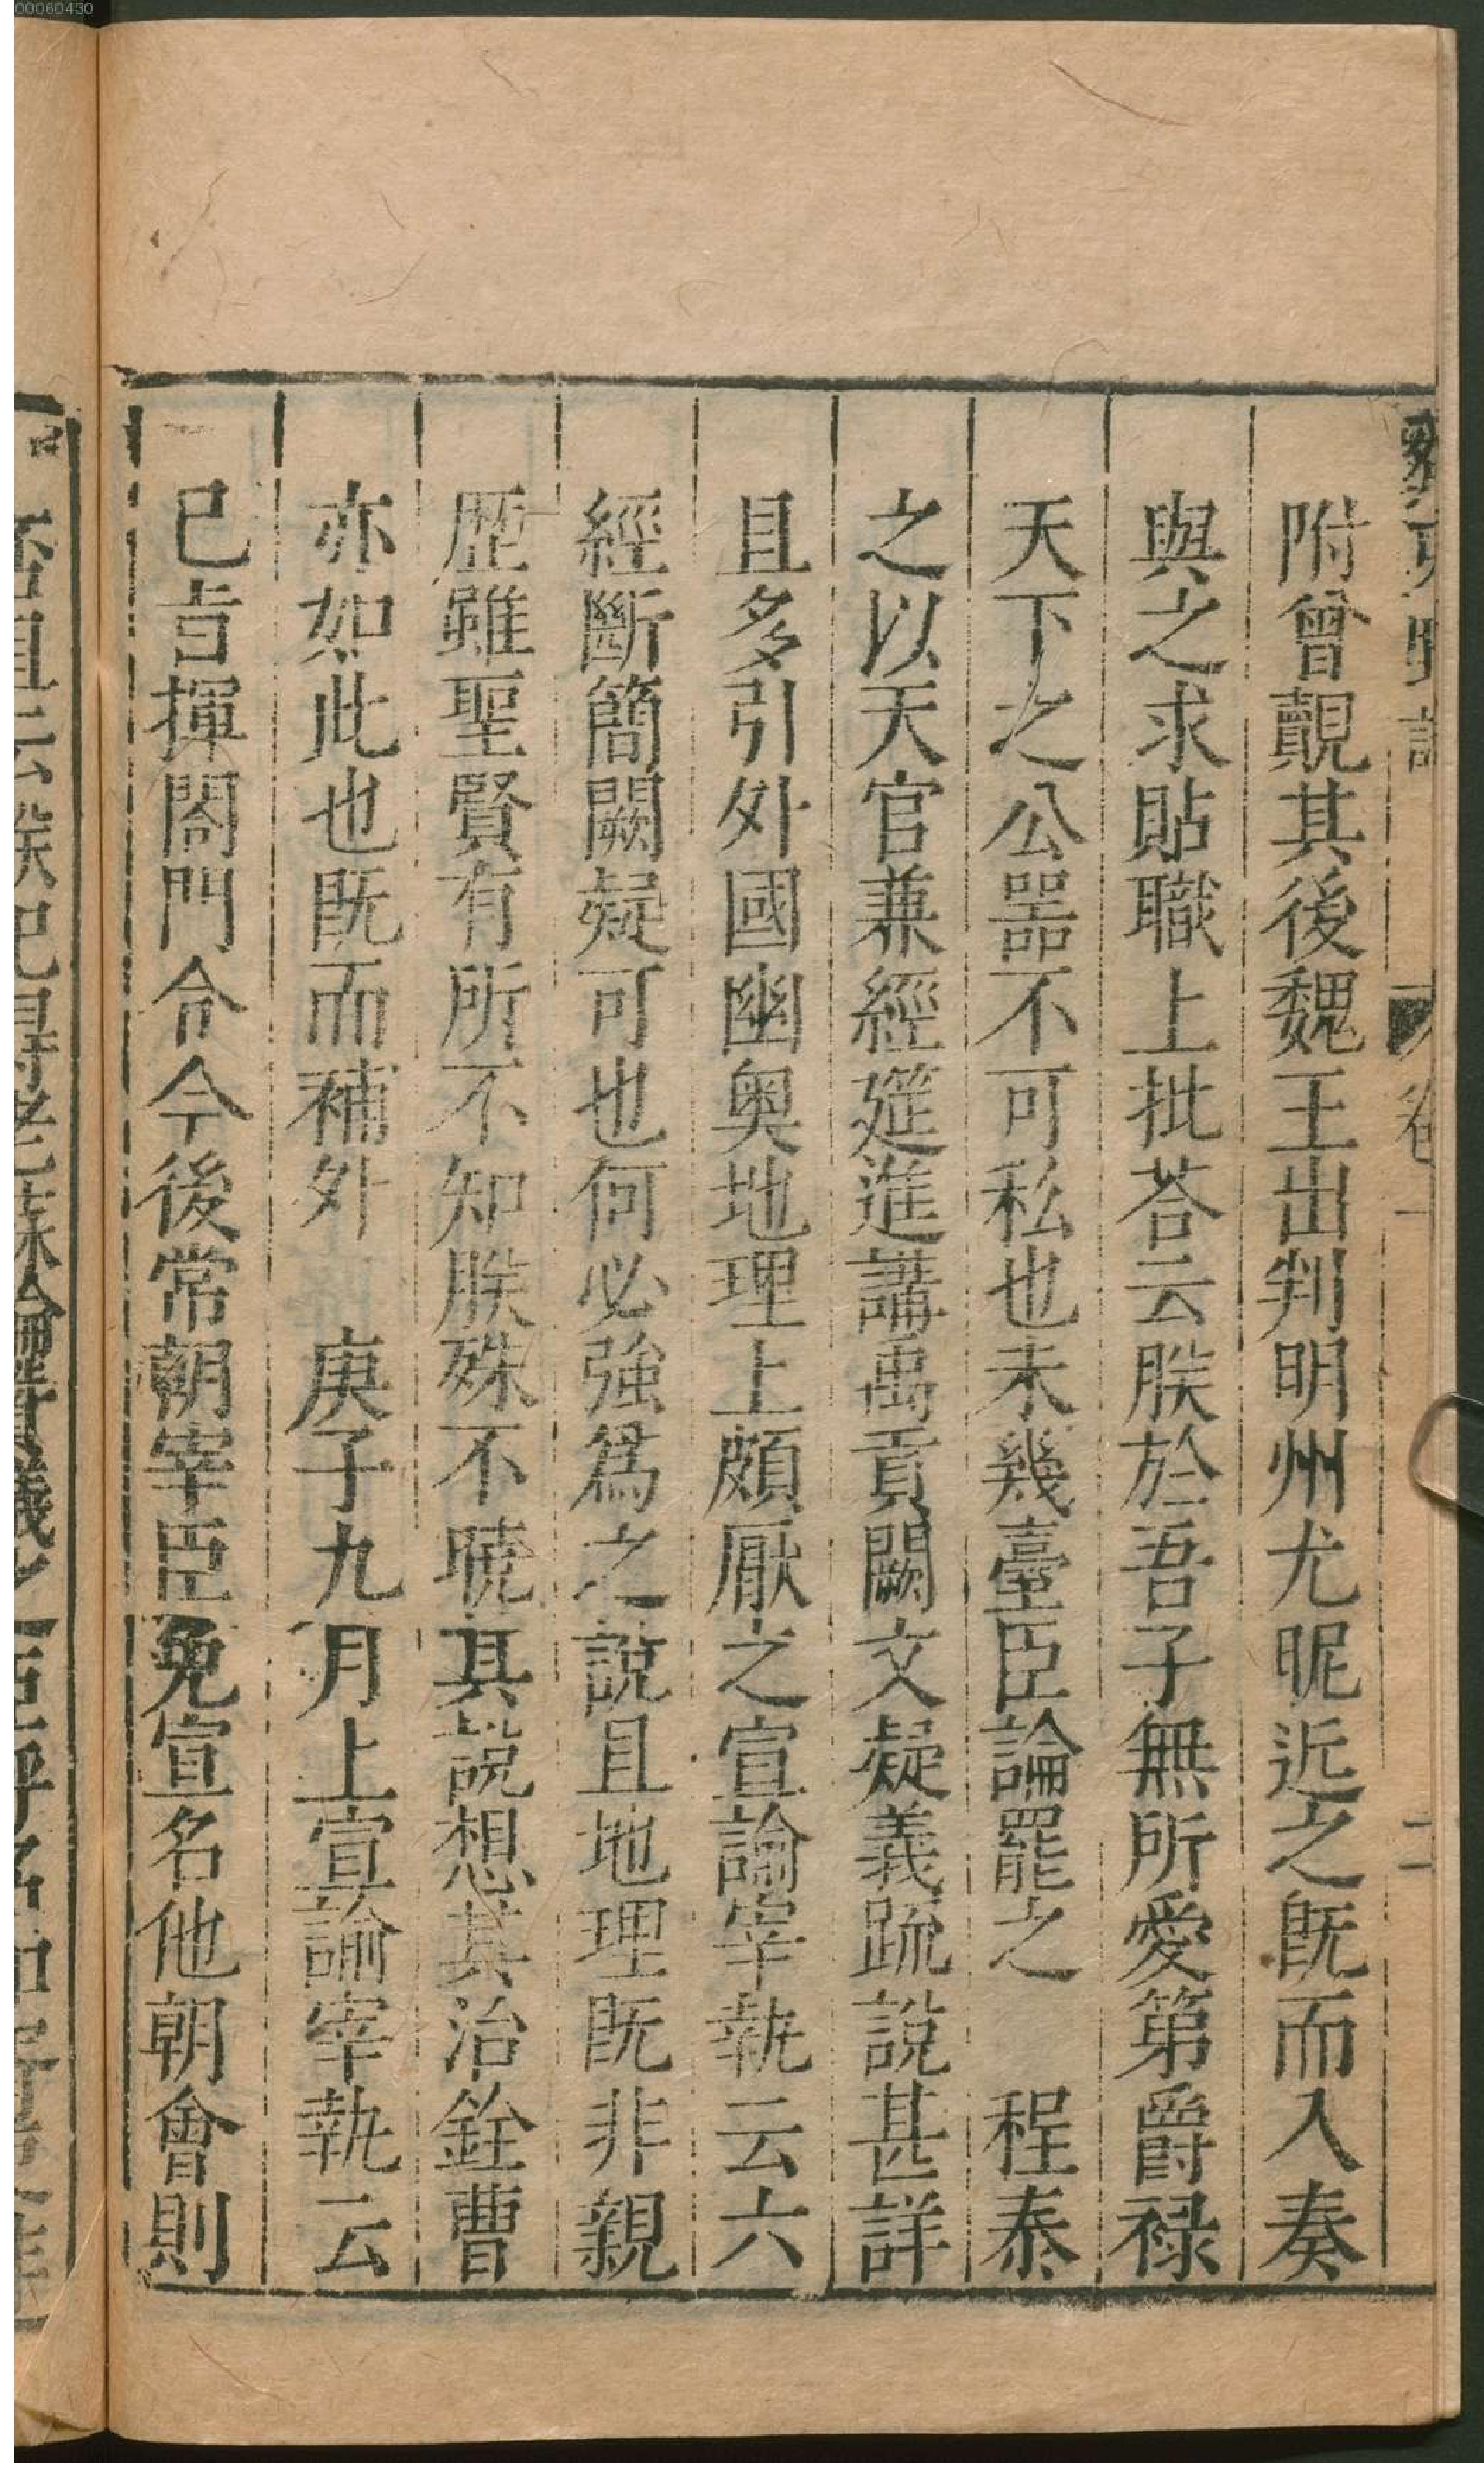 00060430
卷一
二
附會覿其後魏王出判明州尤昵近之既而入奏
與之求貼職上批荅云朕於吾子無所愛第爵禄
天下之公噐不可私也未幾臺臣論罷之　程泰
之以天官兼經筵進講禹貢闕文疑義䟽說甚詳
且多引外國幽奥地理上頗厭之宣諭宰執云六
經斷簡闕疑可也何必強爲之說且地理既非親
歷雖聖賢有所不知朕殊不曉其說想其治銓曹
亦如此也既而補外　庚子九月上宣諭宰執云
已吉揮閤門令今後常朝宰臣免宣名他朝會則